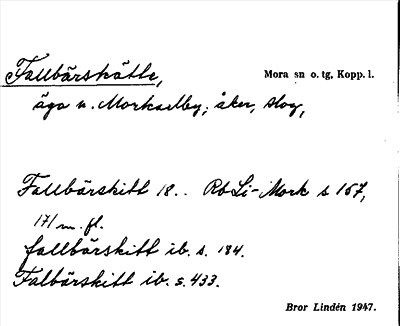 Fallbärskätte, Mora sn o. tg, Kopp. l.
äga v. Morkarlby; åker, skog,
Fallbärskitt 18.. RbLi-Mork s 167,
171 m. fl.
fallbärskitt ib. s. 184.
Falbärskitt ib. s. 433.
Bror Lindén 1947.